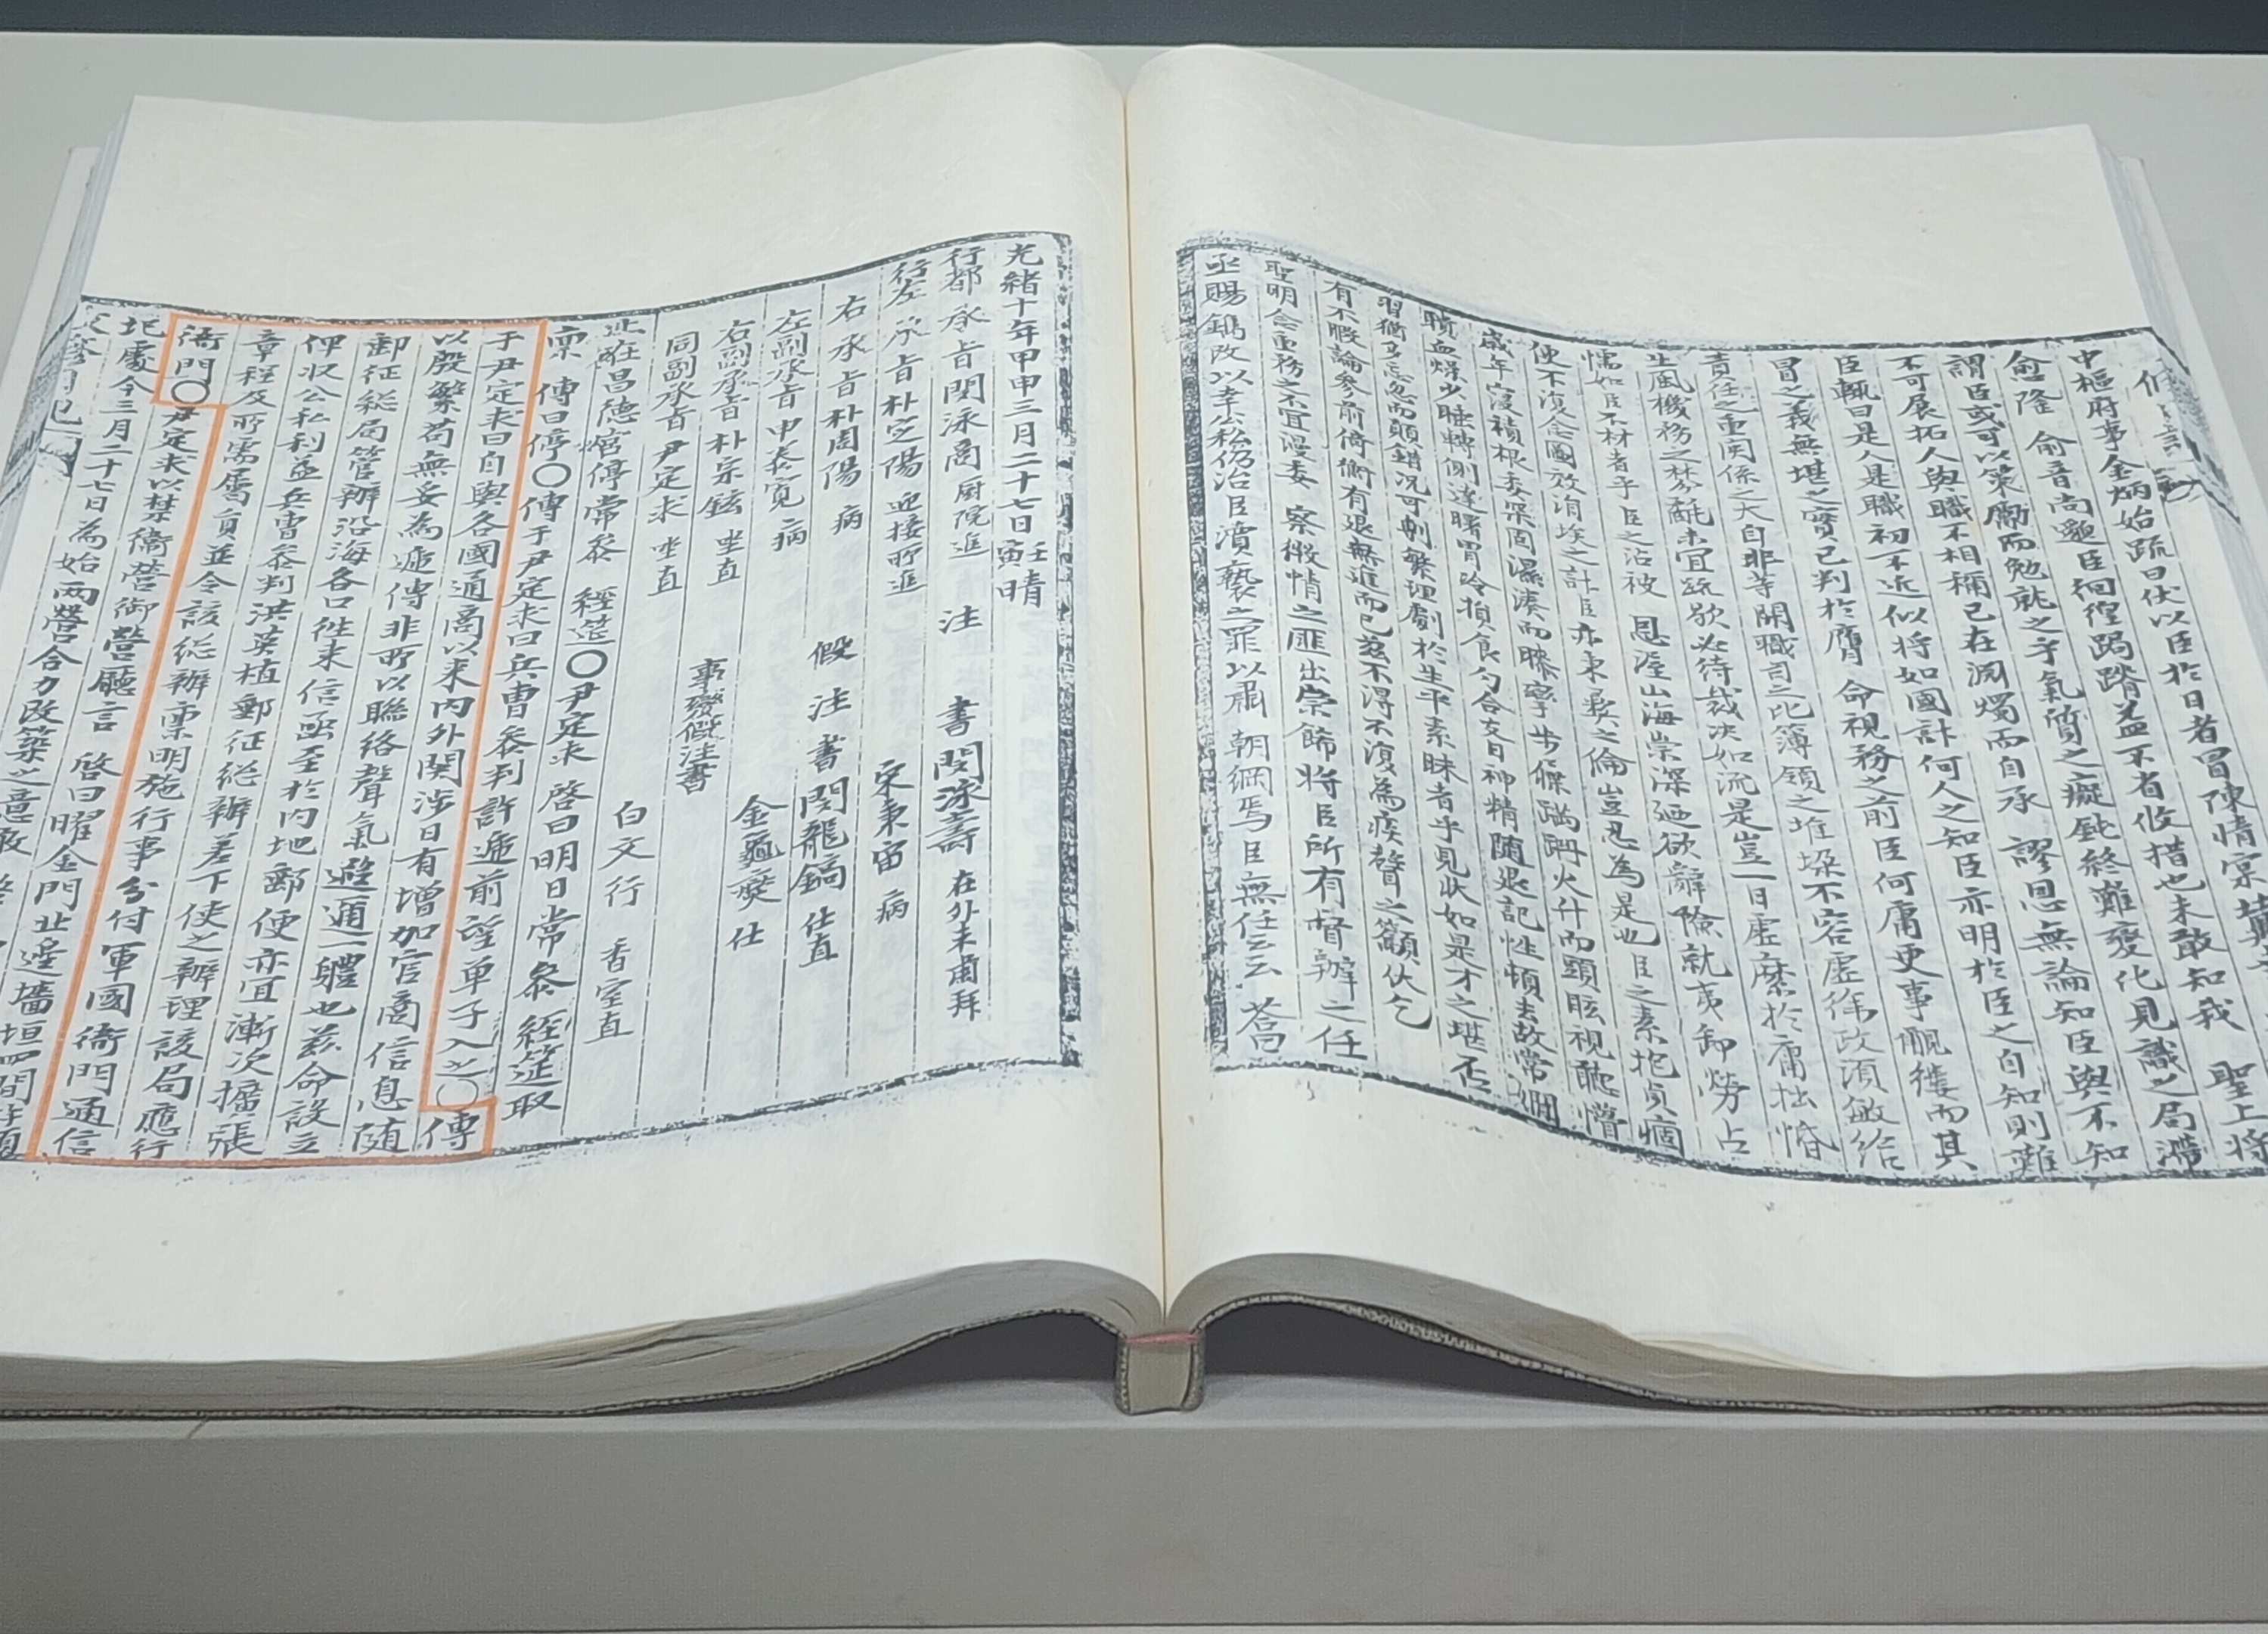 中樞府事金炳始疏曰伏以臣於日者冒陳情 聖上將
愈隆 俞音尚邈臣徊徨跼蹐益不省攸措也未敢知我
謂臣或可以策勵而勉就之乎氣質之癡鈍終難變化見識之局滯
不可展拓人與職不相稱已在洞燭而自承 謬恩無論知臣與不知
臣輒曰是人是職初不近似將如國計何人之知臣亦明於臣之自知則難
冒之義無堪之實已判於膺 命視務之前臣何庸更事覼縷而其
責任之重關係之大自非等閒職司之比簿領之堆垛不容虛徐政須敏給
生風機務之棼氄 宜疏欲必待裁決如流是豈一日虛縻於庸拙惛
懦如臣不材者乎臣之沾被 恩渥山海崇深 欲辭險就夷卸勞占
便不復念圖效涓埃之計臣亦秉彝之倫豈忍為是也臣之素抱貞痼
歲年寢積根委深固濕湊而膝攣步 蹣跚火升而頭眩視聽懵
聵血燥少睡轉側達曙胃冷損食勺合支日神精隨退記性頓去故常
習衡多忘忽而顛錯況可剸繁理劇於生平素昧者乎見狀如是才之堪否
有不暇論參前倚衡有退無進而已玆不得不復為疾聲之籲伏乞
聖明念重務之不宜漫委 察微悃之匪出崇飾將臣所有督辦之任
亟賜鐫改以幸公私仍治臣瀆褻之罪以肅 朝綱焉臣無任云云 答
光緒十年甲申三月二十七日壬寅晴
行都承旨閔泳商 廚院進 注 書閔泳壽 在外未肅拜
行左承旨朴定陽 迎接所進 宋秉宙 病
右承旨朴周陽 病 假注書閔龍鎬 仕直
左副承旨申泰寬 病 金 仕
右副承旨朴宗鉉 坐直 事變假注書
同副承旨尹定求 坐直 白文行 香室直
上在昌德宮停常參 經筵〇尹定求 啓曰明日常參 經筵取
稟 傳曰停〇傳于尹定求曰兵曹參判許遞前望單子入之〇傳
于尹定求曰自與各國通商以來內外關涉日有增加官商信息隨
以殷繁苟無妥為遞傳非所以聯絡聲氣遐邇一體也玆命設立
郵征總局管辦沿海各口往來信函至於內地郵便亦宜漸次擴張
俾收公私利益兵曹參判洪英植郵征總辦差下使之辦理該局應行
章程及所需屬員並令該總辦稟明施行事分付軍國衙門通信
衙門〇尹定求以禁衛營御營廳言 啓曰曜金門北邊墻垣四間
圮處今三月二十七日為始兩營合力改築之意敢